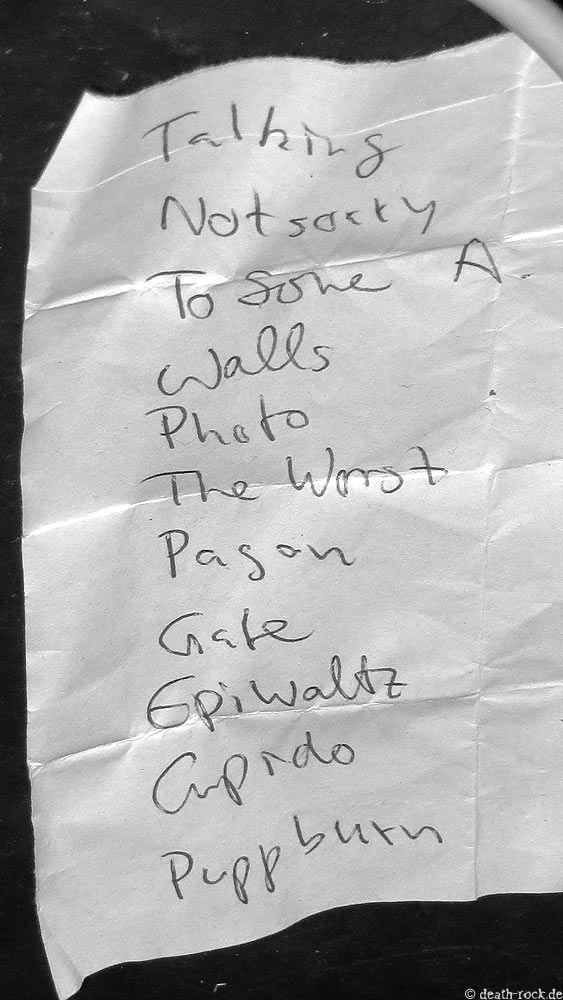 Talking
Not sorry
To Some A.
Walls
Photo
The Worst
Pagan
Gate
Epiwaltz
Cupido
Puppburn
© death-rock.de